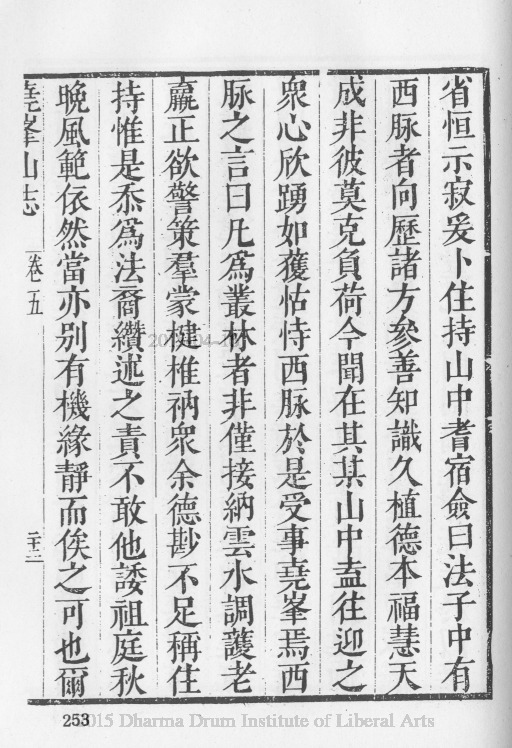 省恒示寂爰卜住持山中耆宿僉曰法子中有
西脉者向歷諸方參善知識久植德本福慧天
成非彼莫克負荷今聞在其某山中盍往迎之
衆心欣踴如獲怙恃西脉於是受事堯峯焉西
脉之言曰凡爲叢林者非僅接納雲水調護老
羸正欲警策羣蒙楗椎衲衆余德尠不足稱住
持惟是忝爲法裔纘述之責不敢他諉祖庭秋
晚風範依然當亦別有機緣靜而俟之可也爾
堯峯山志
卷五
二十二
253
2015 Dharma Drum Institute of Liberal Arts